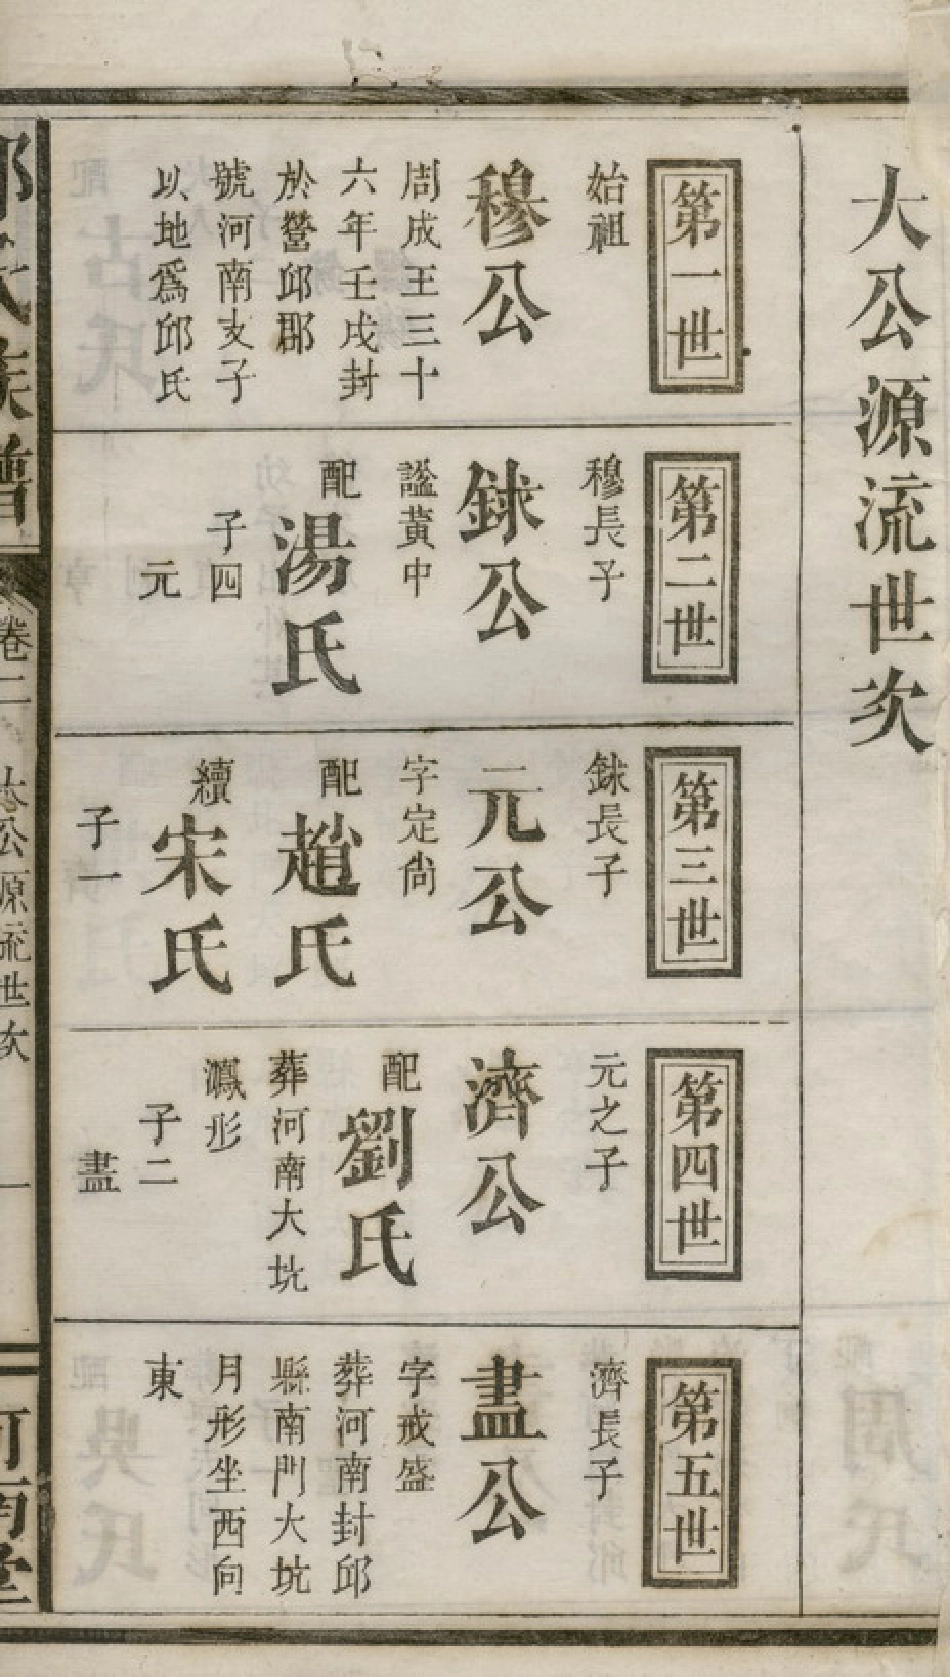 大公源流世次
第一世
始祖
穆公
周成王三十
六年壬戌封
於營邱郡
號河南支子
以地爲邱氏
第二世
穆長子
銾公
謚黃中
配湯氏
子四
元
第三世
銾長子
元公
字定尚
配趙氏
續宋氏
子一
第四世
元之子
濟公
配劉氏
葬河南大坑
鳳形
子二
盡
第五世
濟長子
盡公
字戒盛
葬河南封邱
縣南門大坑
月形坐西向
東
邱氏族譜
卷二
太公源流世次
一
河南堂